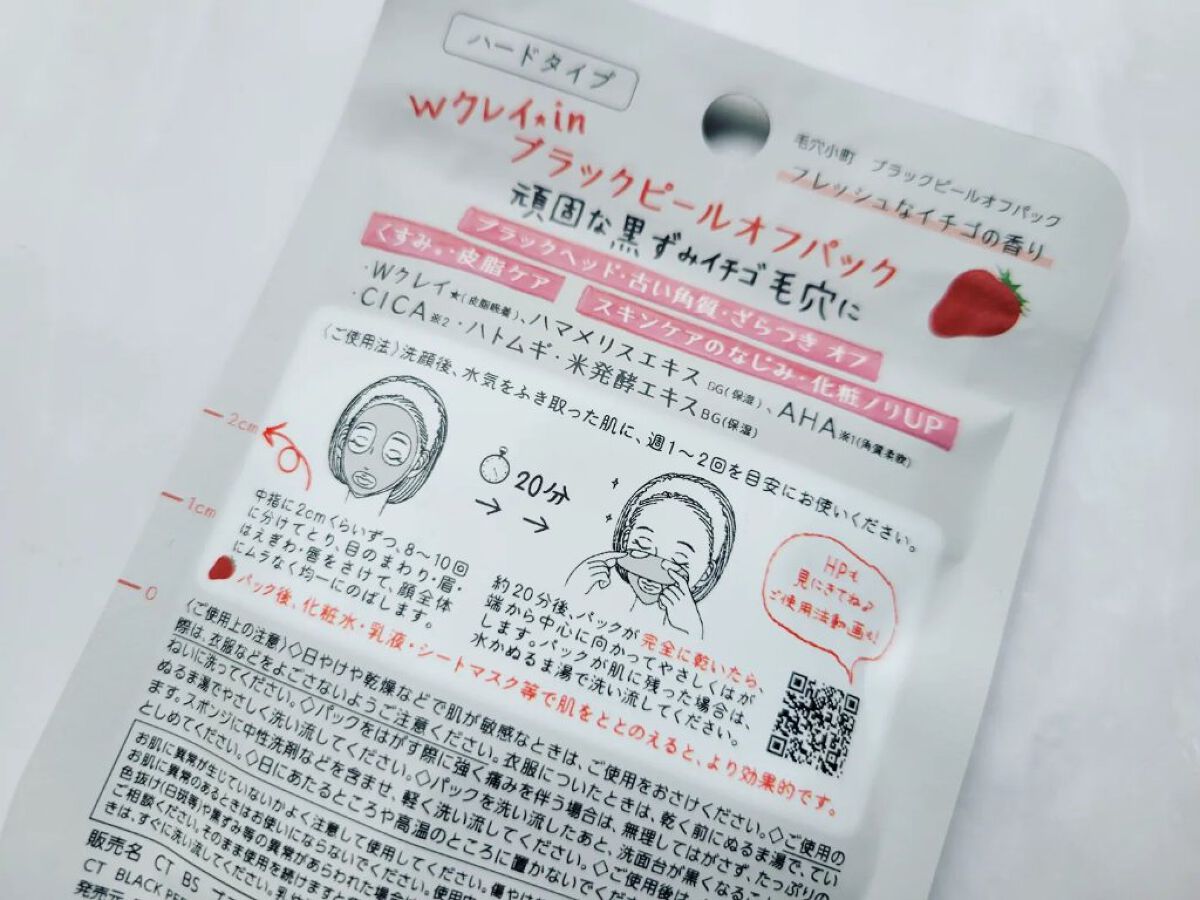 ハードタイプ
Wクレイ★in
ブラックピールオフパック
毛穴小町 ブラックピールオフパック
フレッシュなイチゴの香り
頑固な黒ずみイチゴ毛穴に
ブラックヘッド・古い角質・ざらつき オフ
くすみ・皮脂ケア
スキンケアのなじみ・化粧ノリUP
・Wクレイ★(皮脂吸着)、ハマメリスエキスBG(保湿)、AHA※1(角質柔軟)
・CICA※2・ハトムギ・米発酵エキスBG(保湿)
〈ご使用法〉洗顔後、水気をふき取った肌に、週1〜2回を目安にお使いください。
2cm
1cm
0
20分
中指に2cmくらいずつ、8〜10回
に分けてとり、目のまわり・眉・
はえぎわ・唇をさけて、顔全体
にムラなく均一にのばします。
約20分後、パックが完全に乾いたら、
端から中心に向かってやさしくはが
します。パックが肌に残った場合は、
水かぬるま湯で洗い流してください。
HPも
見にきてね♪
ご使用法動画も!
パック後、化粧水・乳液・シートマスク等で肌をととのえると、より効果的です。
〈ご使用上の注意〉◇日やけや乾燥などで肌が敏感なときは、ご使用をおさけください。◇ご使用の
際は、衣服などをよごさないようご注意ください。衣服についたときは、乾く前にぬるま湯で、てい
ねいに洗ってください。◇パックをはがす際に強く痛みを伴う場合は、無理してはがさず、たっぷりの
ぬるま湯でやさしく洗い流してください。◇パックを洗い流したあと、洗面台が黒くなること
ます。スポンジに中性洗剤などを含ませ、軽く洗い流してください。◇ご使用後は、
としめてください。◇日にあたるところや高温のところに置かないでくだ
お肌に異常が生じていないかよく注意して使用してください。
お肌に異常のあるときはお使いにならないでください。使用中
色抜け(白斑等)や黒ずみ等の異常があらわれた場合
ご相談ください。そのまま使用を続けますと
きは、すぐに洗い流してください。
販売名 CT BS
CT BLACK PEE
発売元